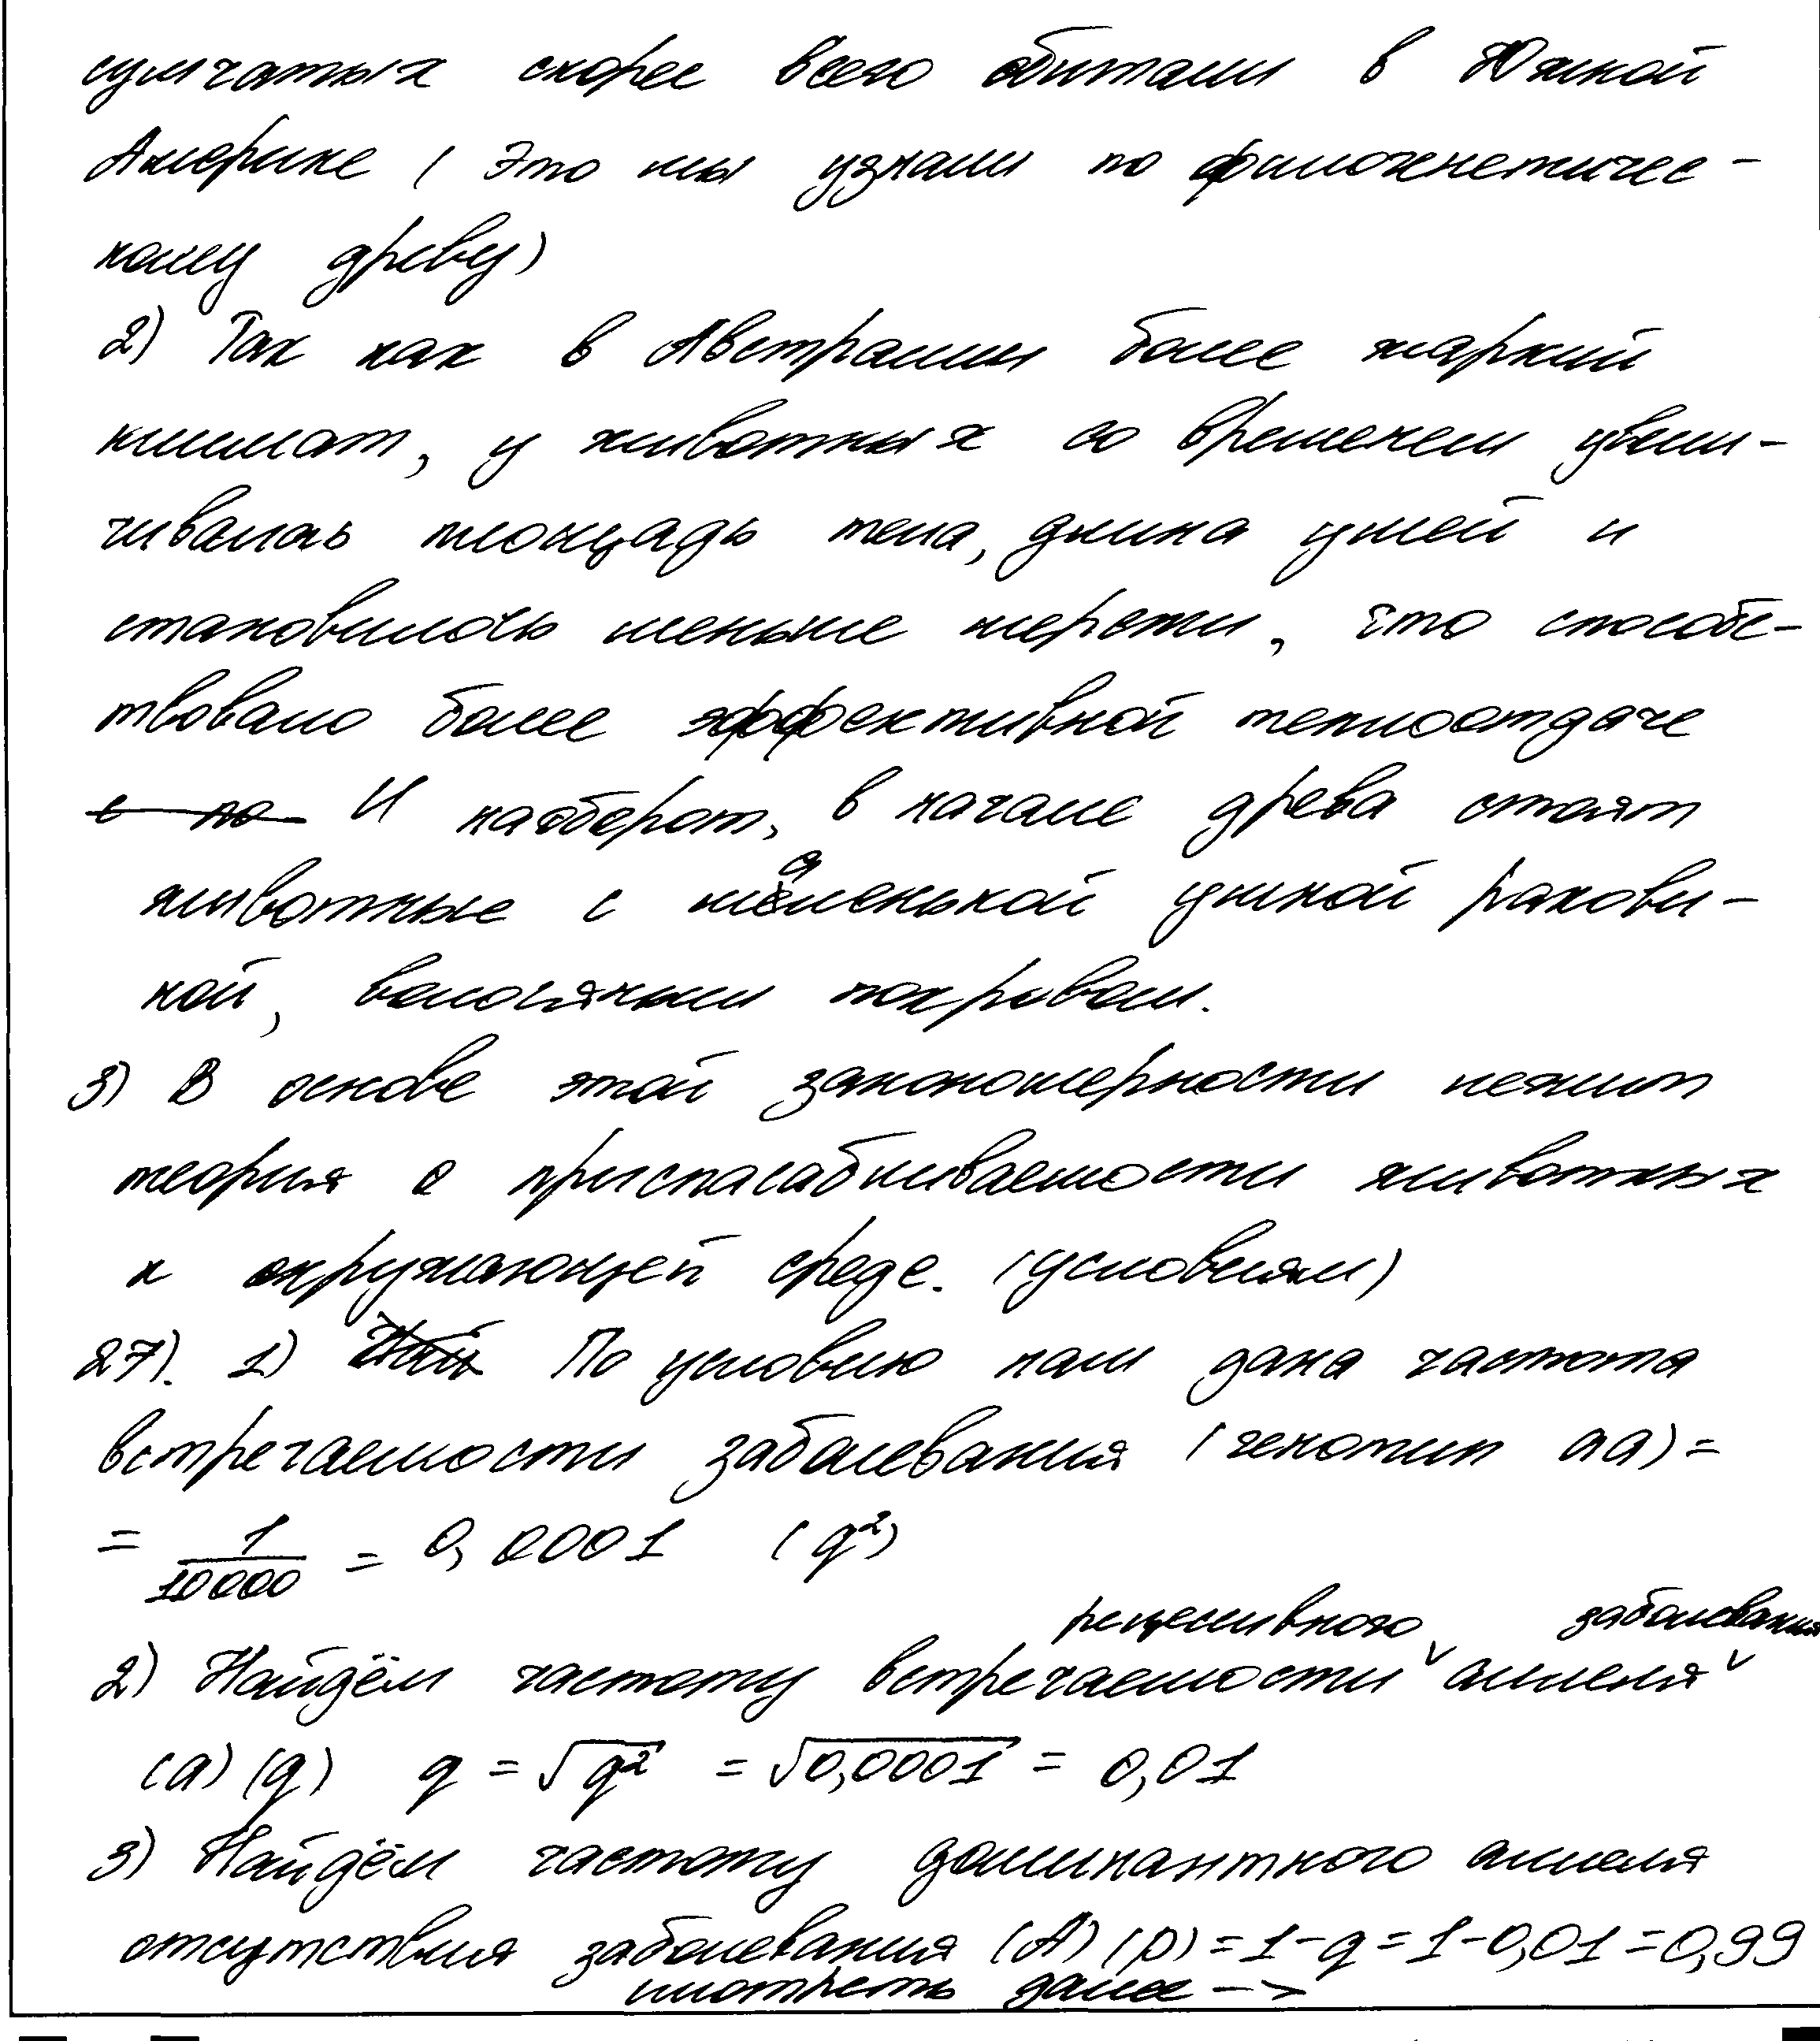 сумчатых скорее всего обитали в Южной
Америке (это мы узнали по филогенетичес-
кому древу)
2) Так как в Австралии более жаркий
климат, у животных со временем увели-
чивалась площадь тела, длина ушей и
становилось меньше шерсти, что способс-
твовало более эффективной теплоотдаче
с по И наоборот, в начале древа стоят
животные с маленькой ушной ракови-
ной, волосяным покровом.
3) В основе этой закономерности лежит
теория о приспасабливаемости животных
к окружающей среде. (условиям)
27). 1) По условию нам дана частота
встречаемости заболевания (генотип aa) =
= 1/10000 = 0,0001 (q²)
2) Найдём частоту встречаемости рецессивного аллеля заболевания
(a) (q) q = √q² = √0,0001 = 0,01
3) Найдём частоту доминантного аллеля
отсутствия заболевания (A) (p) = 1-q = 1-0,01 = 0,99
смотреть далее -->